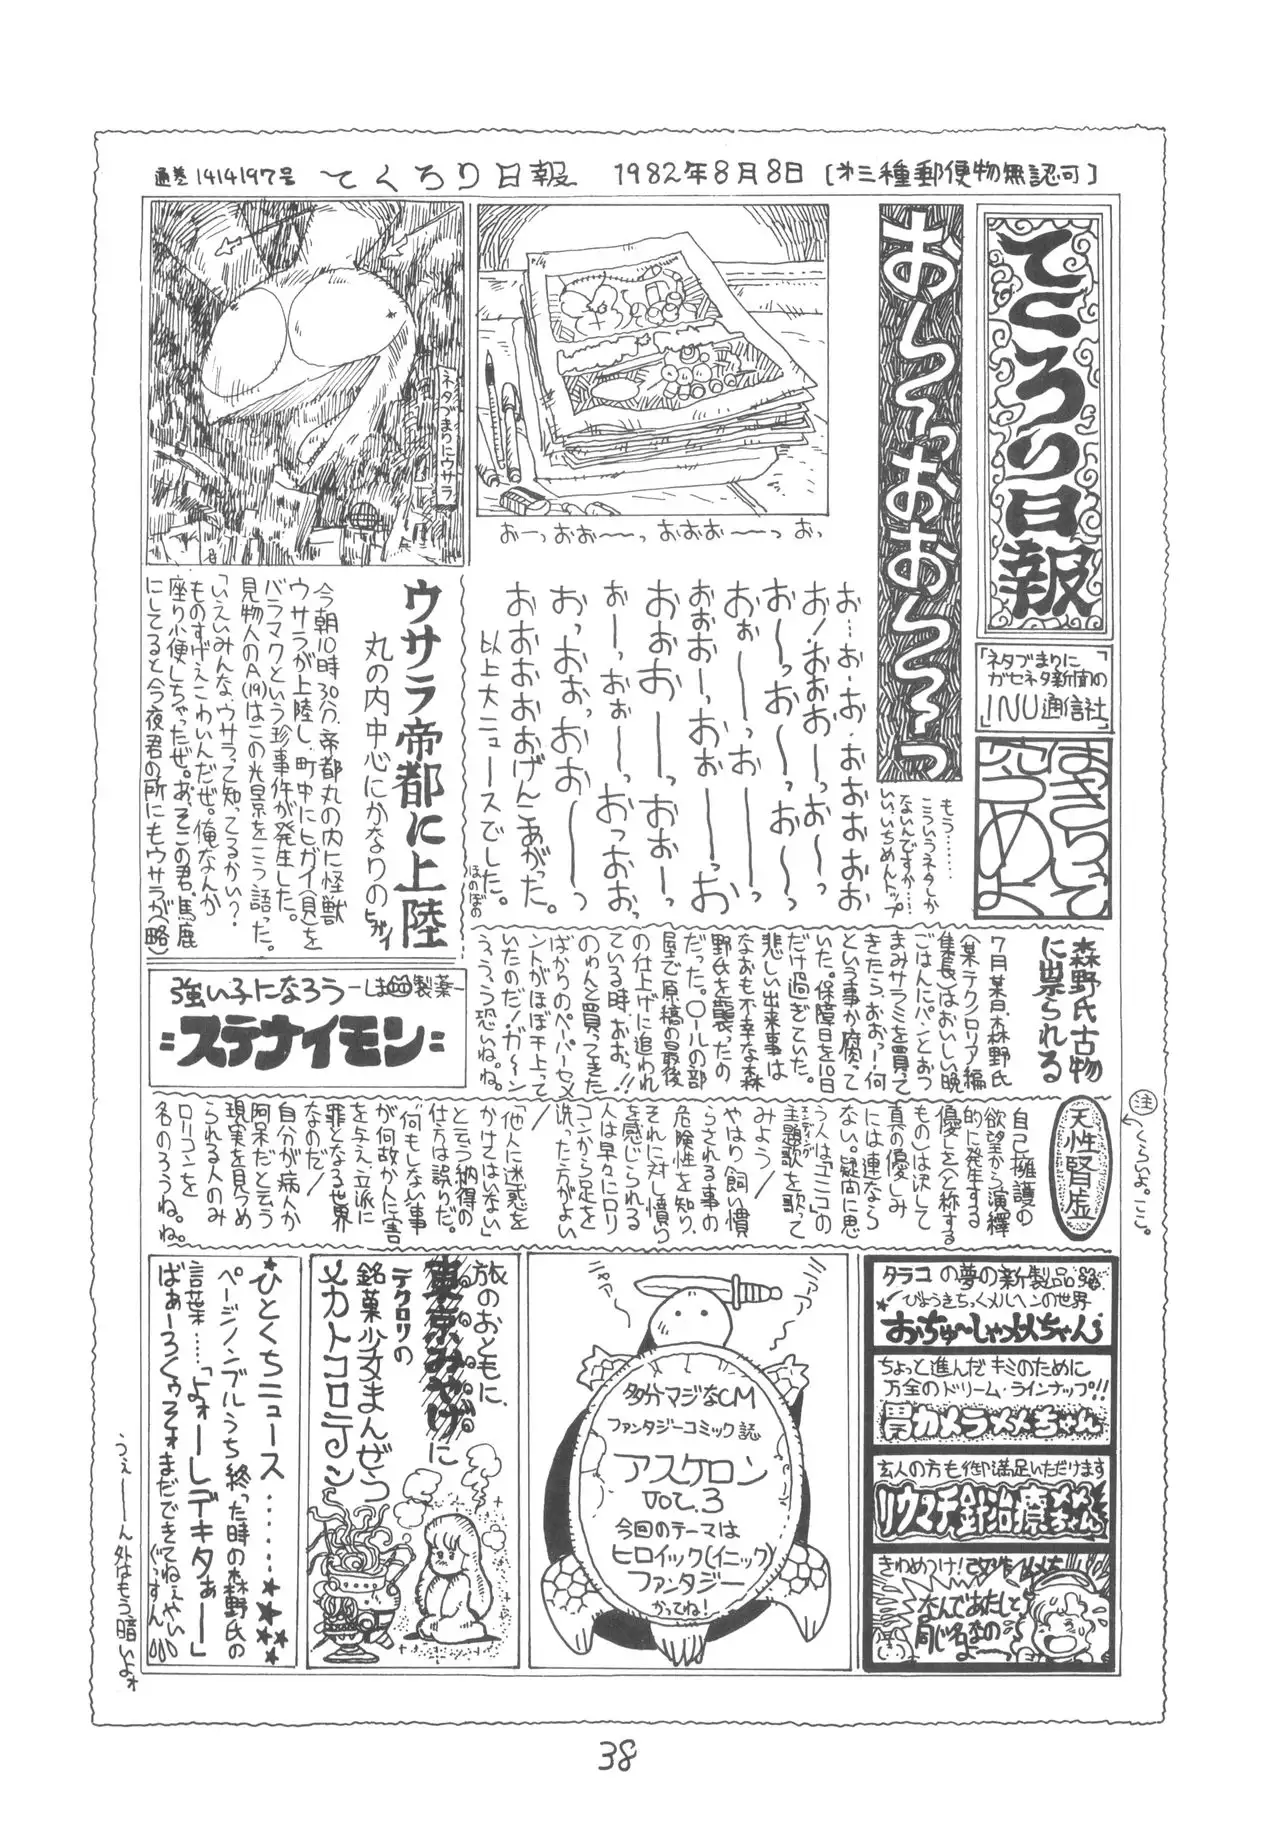 通巻1414197号 てくろり日報 1982年8月8日 [オ三種郵便物無認可]
てくろり日報
「ネタづまりに
ガセネタ新聞の」
INU通信社
おーっおおーっ
もう……
こういうネタしか
ないんですか……
いいいちめんトップ
おーっおおーっ おおおーっ おっ
お…お・お・おおおおお
お!おおおーっおーっ
おーっおーっおーっ
おぉーっおーっ
おおおーっおおーっお
おおおーっおおーっ
おーっおぉーっおっおお
おっおおーっおおーっ
おおおおおげんこあがった。
以上大ニュースでした。
ほのぼの
ネタづまりにウサラ
ウサラ帝都に上陸
丸の内中心にかなりのヒガイ
今朝10時30分、帝都丸の内に怪獣
ウサラが上陸し、町中にヒガイ(貝)を
バラマクという珍事件が発生した。
見物人のA(19)はこの光景をこう語った。
「いえんみんな、ウサラって知ってるかい?
ものすげえこわいんだぜ。俺なんか
座り小便しちゃったぜ。あ、そこの君、馬鹿
にしてると今夜君の所にもウサラが(略)
強い子になろう
製薬
=ステナイモン=
森野氏古物
に祟られる
7月某日、森野氏
(某テクロリア編
集長)はおいしい晩
ごはんにパンとおつ
まみサラミを買って
きたら、おおー!何
という事か腐って
いた。保障日を10日
だけ過ぎていた。
悲しい出来事は
なおも不幸な森
野氏を襲ったの
だった。ロールの部
屋で原稿の最後
の仕上げに追われ
ている時、おおっ!!
のゅんと買ってきた
ばかりのペーパーセメ
ントがほぼ干上って
いたのだ!ガーン
ううう、う恐いね。ね。
天性腎虚
注
くらいよ。ここ。
自己擁護の
欲望から演繹
的に発生する
優しさ〈と称する
もの〉は決して
真の優しみ
には連なら
ない。疑問に思
う人は「ユニコ」の
主題歌を歌って
エンディング
みよう/
やはり、飼い慣
らされる事の
危険性を知り、
それに対し憤り
を感じられる
人は早々にロリ
コンから足を
洗った方がよい
/
「他人に迷惑を
かけてはいない」
と云う納得の
仕方は誤りだ。
何もしない事
が何故か人に害
を与え、立派に
罪となる世界
なのだ/
自分が病人か
阿呆だと云う
現実を見つめ
られる人のみ
ロリコンを
名のろうね。ね。
タラコの夢の新製品
びょうきちっくメルヘンの世界
おちゅ〜しゃメメちゃん
ちょっと進んだキミのために
万全のドリーム・ラインナップ!!
カメラメメちゃん
玄人の方も御満足いただけます
リウマチ針治療ちゃん
きわめつけ!改造メメ
なんであたしと
同じ名なの
よーっ
ニャァー
ニャァー
多分マジなCM
ファンタジーコミック誌
アスケロン
VOL.3
今回のテーマは
ヒロイック(イニック)
ファンタジー
かってね!
旅のおともに、
東京みやげに
テクロリの
銘菓少女まんぜう
メカトコロテン
ひとくちニュース……
ページノンブルうち終った時の森野氏の
言葉……「よォーしデキタァー」
ばぁーろくゥそォまだできてねぇやい
(ぐっすん)
うぇーーん外はもう暗いよォ
38